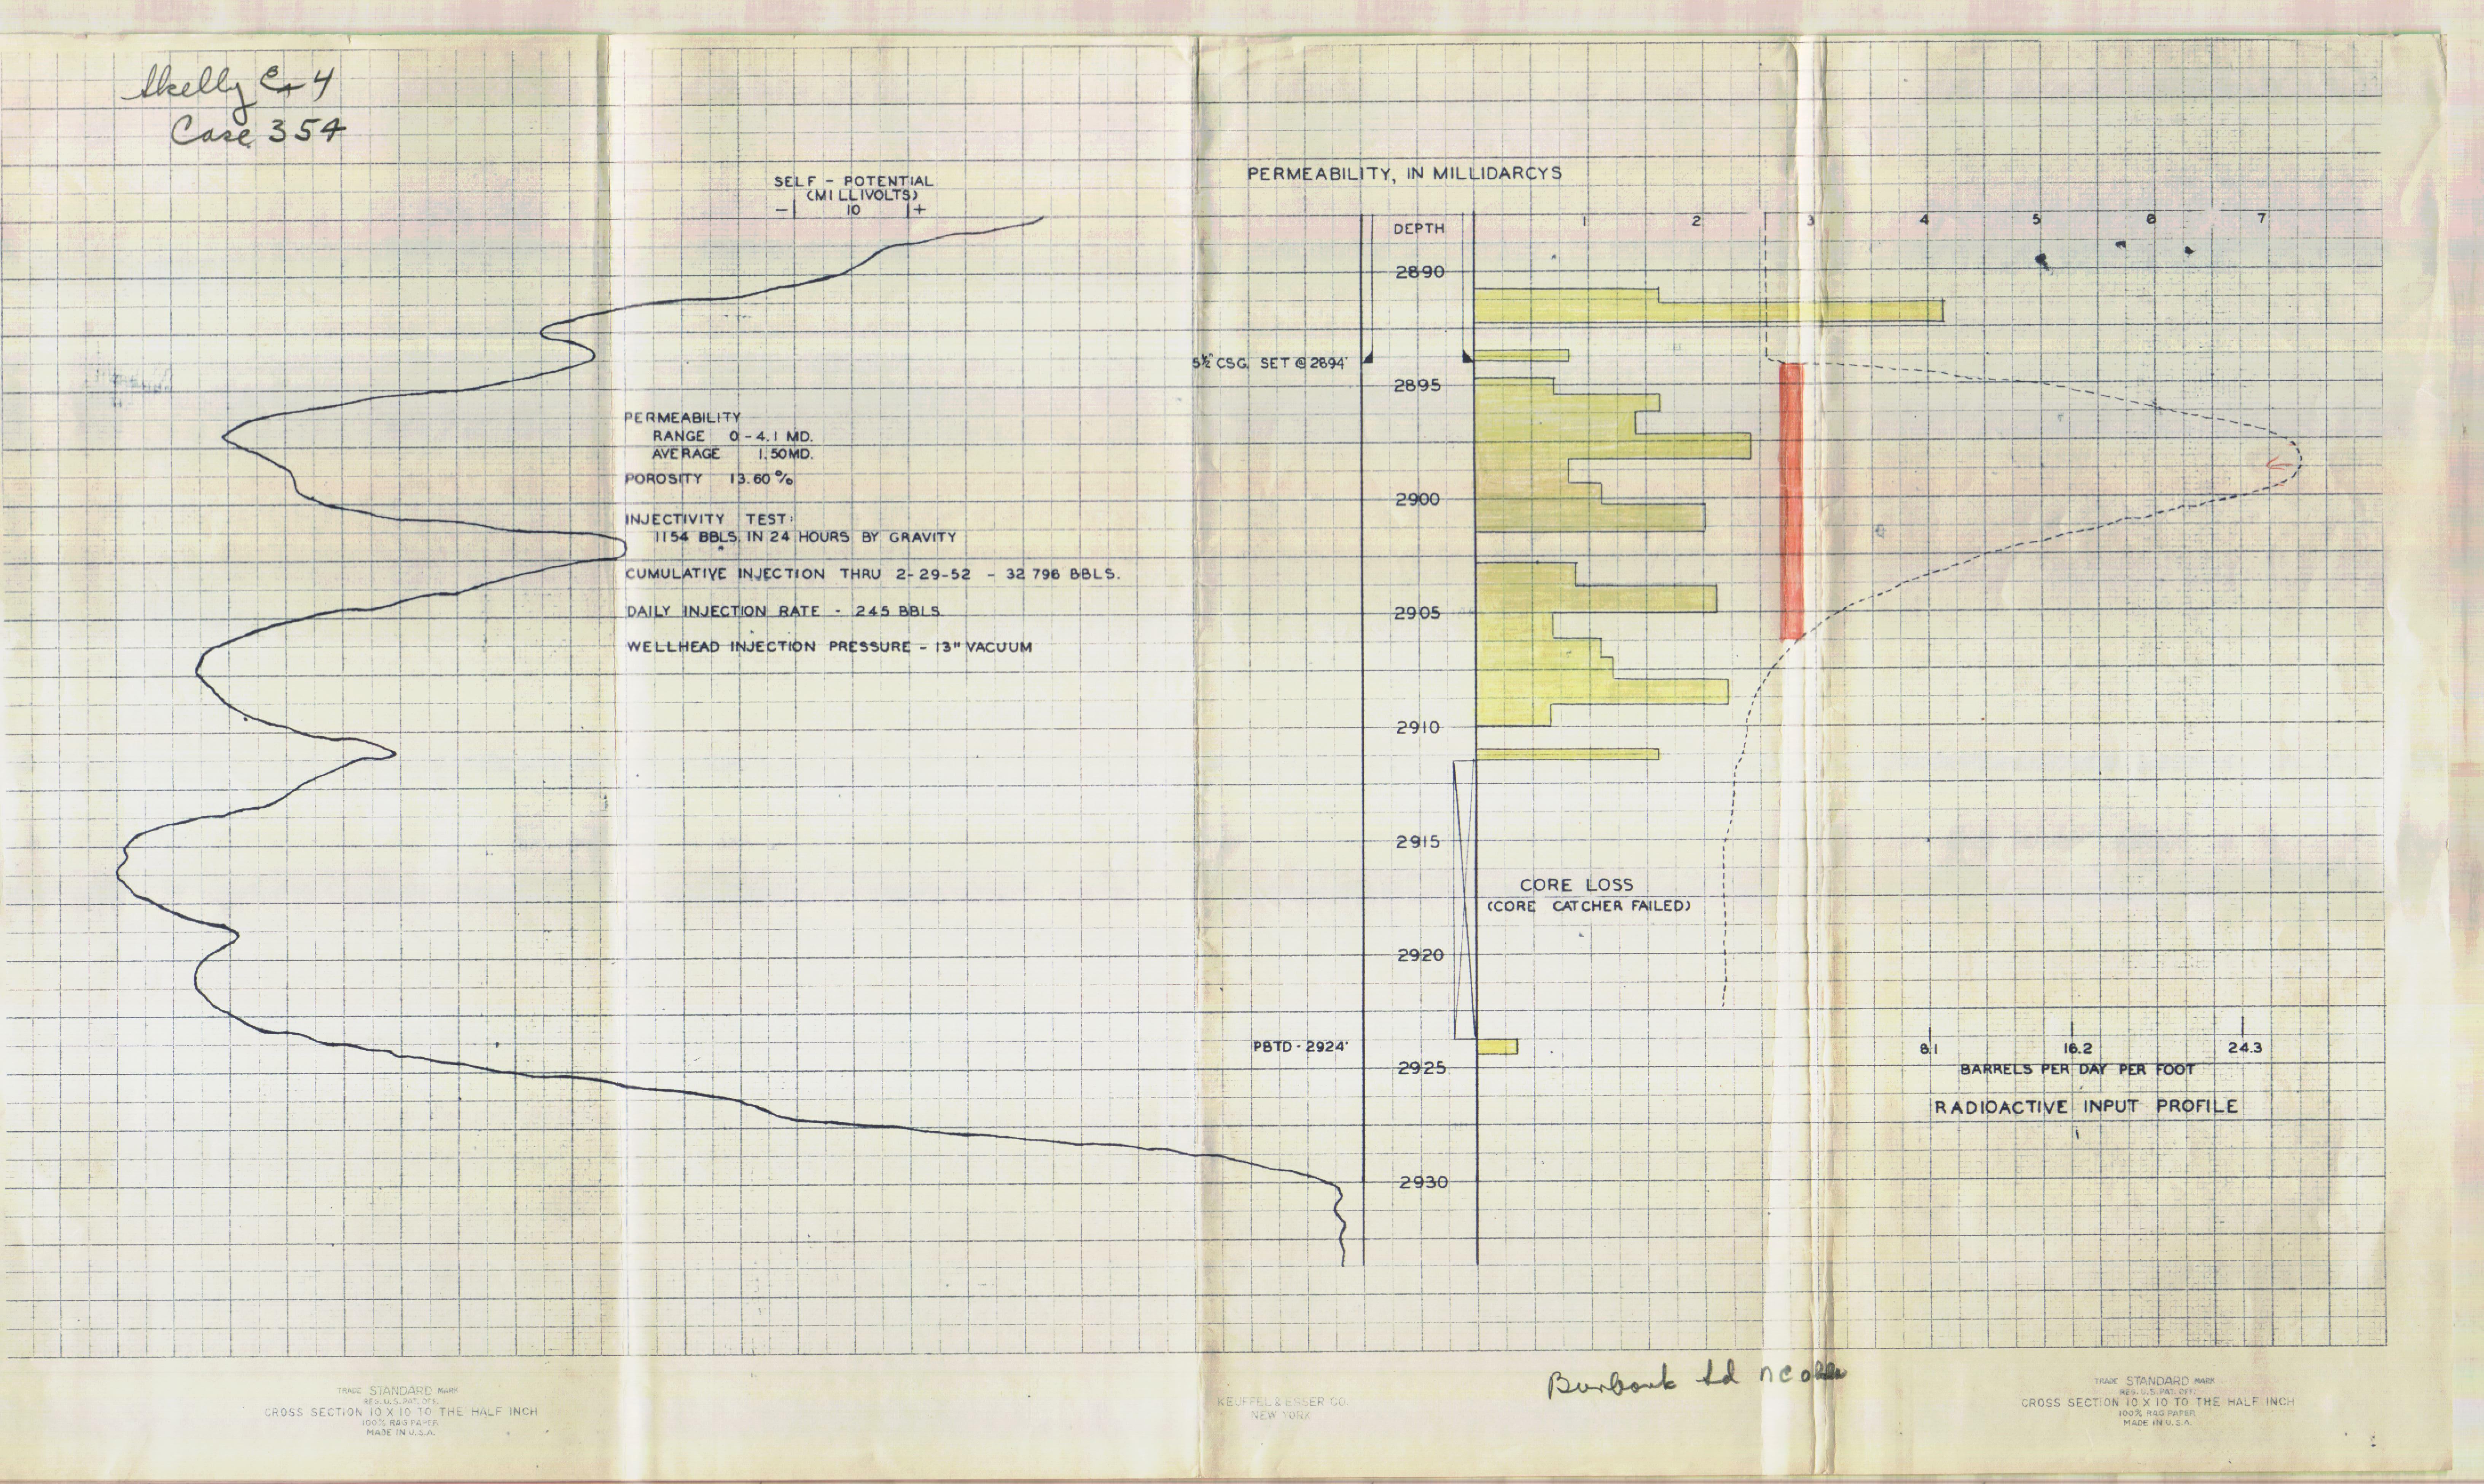 Skelly C-4
Case 354
SELF - POTENTIAL
(MILLIVOLTS)
- 10 +
PERMEABILITY, IN MILLIDARCYS
DEPTH 1 2 3 4 5 6 7
2890
5½" CSG. SET @ 2894'
2895
PERMEABILITY
RANGE 0 - 4.1 MD.
AVERAGE 1.50 MD.
POROSITY 13.60 %
2900
INJECTIVITY TEST:
1154 BBLS. IN 24 HOURS BY GRAVITY
CUMULATIVE INJECTION THRU 2-29-52 - 32 796 BBLS.
DAILY INJECTION RATE - 245 BBLS
2905
WELLHEAD INJECTION PRESSURE - 13" VACUUM
2910
2915
CORE LOSS
(CORE CATCHER FAILED)
2920
PBTD - 2924'
2925
8.1 16.2 24.3
BARRELS PER DAY PER FOOT
RADIOACTIVE INPUT PROFILE
2930
Burbank Sd NC Okla
TRADE STANDARD MARK
REG. U.S. PAT. OFF.
CROSS SECTION 10 X 10 TO THE HALF INCH
100% RAG PAPER
MADE IN U.S.A.
KEUFFEL & ESSER CO.
NEW YORK
TRADE STANDARD MARK
REG. U.S. PAT. OFF.
CROSS SECTION 10 X 10 TO THE HALF INCH
100% RAG PAPER
MADE IN U.S.A.